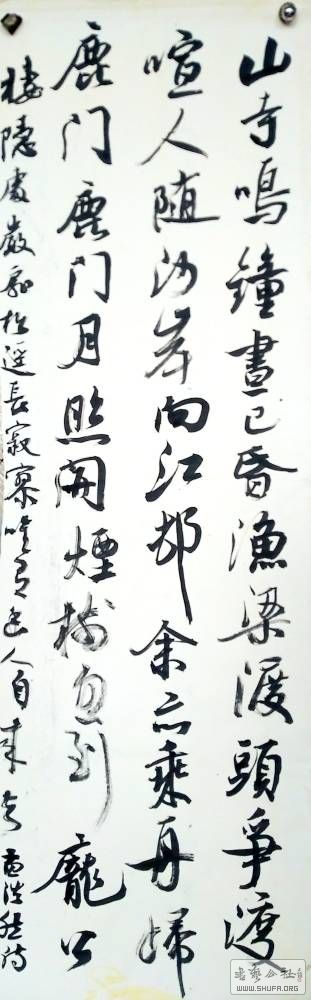 山寺鳴鐘晝已昏漁梁渡頭爭渡
喧人随沙岸向江邨余亦乘舟歸
鹿门鹿门月照開煙樹忽到龐公
棲隱處巖扉松逕長寂寥唯有幽人自来去孟浩然诗
书艺公社
WWW.SHUFA.ORG